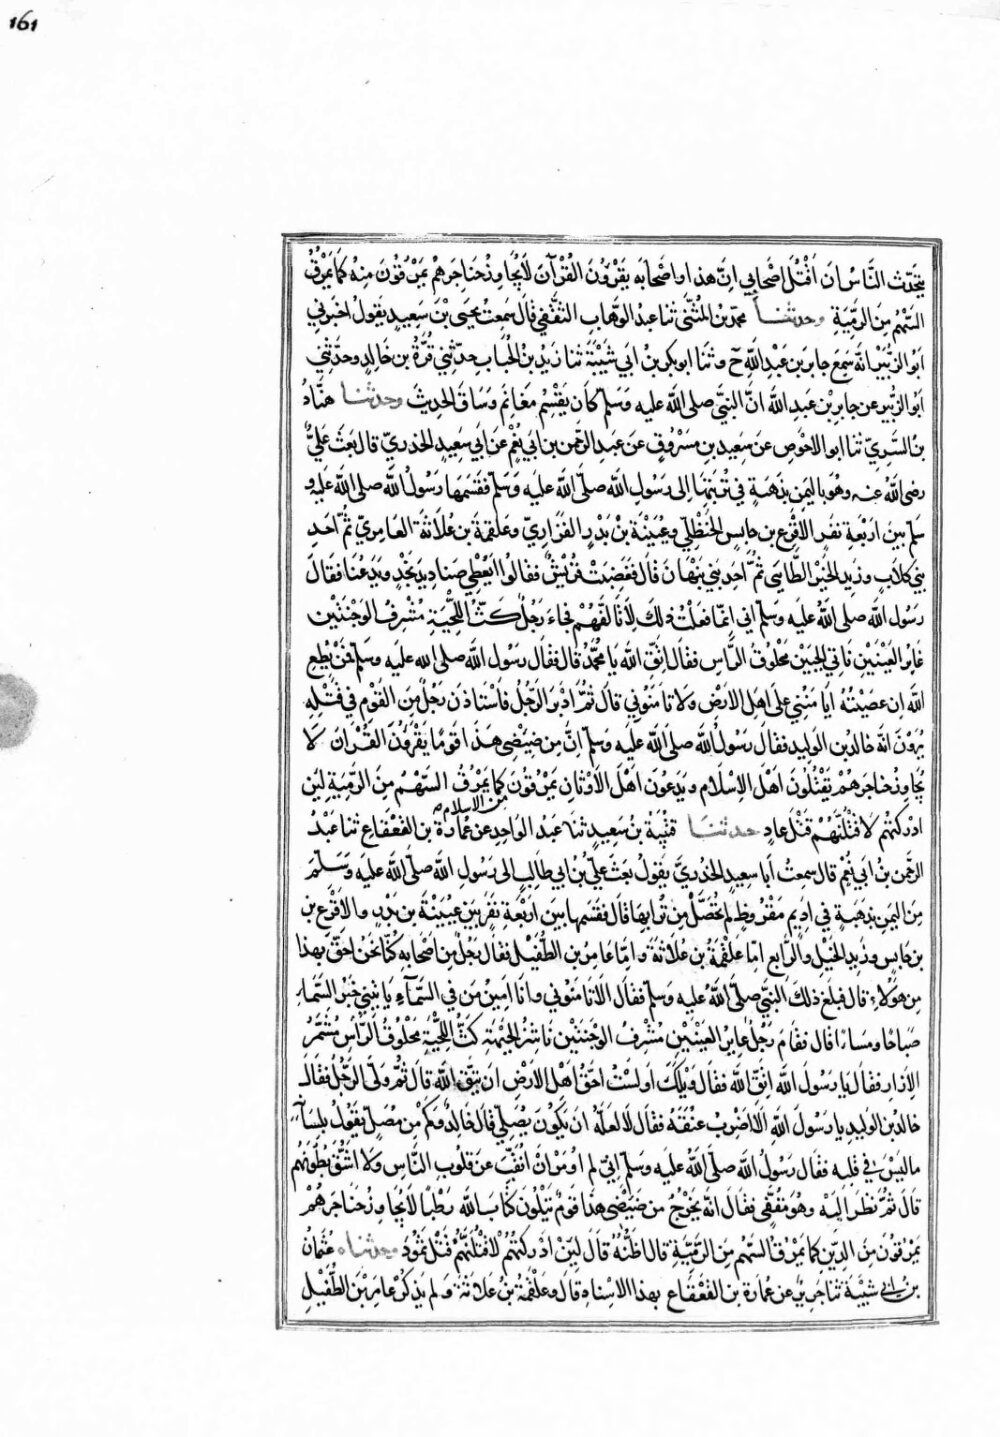 161
يتحدّث النَّاسُ ان اَقْتُلَ اَصْحابي اِنَّ هذا واَصْحابَه يَقرؤنَ القُرْآنَ لاَ يُجاوِزُ حَناجِرَهُمْ يَمْرُقُونَ مِنْهُ كَما يَمْرُقُ
السَّهْمُ مِنَ الرَّمِيَّةِ وحدثنا محمّد بن المُثَنّى ثنا عبد الوَهّابِ الثقَفي قال سَمِعتُ يحيَى بْنَ سَعِيدٍ يقولُ اخبَرني
اَبو الزُّبَيْرِ انّه سَمِعَ جابِرَ بن عَبْدِ اللّٰهِ ح وثنا ابو بكر بنُ ابي شَيْبَةَ ثنا زَيْدُ بنُ الحُبابِ حدّثني قُرَّةُ بن خَالِدٍ وحدّثني
اَبو الزُّبَيرِ عن جابِرِ بْنِ عَبدِ الله انَّ النَّبيَّ صلى اللّٰه عليه وَسَلّم كان يَقْسِمُ مَغانِمَ وَسَاقَ الحَديثَ وحدثنا هنَّادُ
بنُ السَّرِيّ ثنا ابو الاحْوَصِ عن سَعِيدِ بنِ مَسْرُوقٍ عن عبد الرّحمن بن ابي نُعْمٍ عن اَبي سَعِيدٍ الخدريّ قال بَعَثَ عَليٌّ
رضى اللّٰهُ عنه وهُوَ باليَمَنِ بِذَهَبَةٍ في تُرْبَتِها اِلى رَسُولِ اللّٰه صلّى اللّٰه عليه وَسَلّم فقَسَمَها رَسُولُ اللّٰه صلى اللّٰه عَليه و
سَلّم بَينَ اَرْبَعَةِ نفَرٍ الاَقْرَعِ بن حابِسٍ الحَنظَلِيّ وعُيَيْنَةَ بْنِ بَدْرٍ الفَزَاريّ وعَلقمَةَ بن عُلاَثَةَ العَامِريّ ثُمَّ اَحَدِ
بَني كلاَبٍ وزَيدِ الخَيْرِ الطَّائي ثمَّ اَحَدِ بَني نَبْهانَ قالَ فغَضِبَتْ قُرَيْشٌ فقالُوا ايُعْطي صَناديدَ نَجْدٍ ويَدَعُنَا فقالَ
رَسُولُ اللّٰه صلى اللّٰهُ عليه وَسَلّم اني انَّما فعَلتُ ذلِكَ لاَِتَالَّفَهُمْ فجاءَ رَجُلٌ كَثُّ اللِّحْيَةِ مُشْرِفُ الوَجْنَتَيْن
غَائِرُ العَيْنَيْنِ نَاتِي الجَبِيْنِ مَحْلُوقُ الرَّاسِ فقالَ اتَّقِ اللّٰه يا محَمَّدُ قال فقال رَسُولُ اللّٰه صلى الله عليه وَسَلّم فمَنْ يُطِعِ
اللّٰهَ اِن عصَيْتُهُ اَيا مَنُنِي على اَهْلِ الاَرْضِ ولا تا مَنُوني قال ثُمَّ ادْبَرَ الرَّجُلُ فاستَاذنَ رَجُلٌ مِنَ القَوْمِ في قَتْلِهِ
يُرَوْنَ انَّه خالدُ بن الوَليدِ فقال رسُولُ اللّٰه صلى اللّٰه عَلَيه وَسَلّم اِنَّ مِن ضِئضِئ هَذا قومًا يَقْرَؤُنَ القُرْانَ لا
يُجَاوزُ حناجِرَهُمْ يَقْتُلُونَ اَهْلَ الاِسْلَامِ ويَدَعُونَ اَهْلَ الاَوْثَانِ يَمْرُقُونَ كما يَمْرُقُ السَّهْمُ مِنَ الرَّمِيَّةِ لَئِن
من الاسلام
ادْرَكتُهُم لاَقْتُلَنَّهُمْ قَتْلَ عادٍ حدثنا قتَيْبَةُ بن سَعِيدٍ ثنا عَبدُ الواحِدِ عن عُمارَةَ بن القَعْقَاعِ ثنا عَبْدُ
الرَّحمن بنُ ابي نُعْمٍ قال سمعتُ اَبا سعيدٍ الخدريَّ يقولُ بعَثَ عليُّ بنُ ابي طالبٍ الى رَسُولِ اللّٰه صلّى اللّٰه عليه وَسَلَّمَ
مِنَ اليَمَنِ بذَهَبَةٍ في اَدِيمٍ مَقْرُوظٍ لم تُحَصَّلْ مِن تُرابِها قال فقَسَمها بين اَرْبَعَةِ نفَرٍ بين عُيَيْنَةَ بن بَدْرٍ والاَقْرَعِ بن
بن حابِسٍ وزَيدِ الخَيْلِ والرَّابعِ امَّا عَلقَمَةُ بن عُلاثةَ واِمّا عامِرُ بن الطُّفَيْلِ فقال رَجُلٌ مِنْ اَصْحَابِه كُنّا نحن احَقَّ بهذا
مِن هؤلاَءِ قال فبلغ ذلكَ النبيَّ صلّى اللّٰهُ عليه وسَلّم فقال الاَ تا مَنُوني وانَا امينُ مَن في السَّمآءِ ياتِيني خَبَرُ السَّماءِ
صَباحًا ومَسَاءً قال فقَامَ رَجُلٌ غايِرُ العَيْنَيْنِ مُشْرِفُ الوَجْنَتَيْنِ ناشِزُ الجَبْهَةِ كَثُّ اللِّحْيَةِ مَحْلُوقُ الرَّاْسِ مُشَمَّرُ
الاِزَارِ فقال يا رَسُولَ اللّٰه اتَّقِ اللّٰه فقال وَيْلَكَ اَوَلَسْتُ احَقَّ اَهْلِ الاَرْضِ ان يَتَّقيَ اللّٰهَ قال ثُمَّ ولّى الرَّجُلُ فقال
خالدُ بن الوَليدِ يا رسُولَ اللّٰهِ اَلاَ اضْرِبُ عنُقَهُ فقال لا لعَلَّه ان يَكُونَ يُصَلّي قال خالِدٌ وكَمْ مِن مُصَلٍّ يَقولُ بلسَانه
ما لَيْسَ في قلبِه فقال رَسُولُ اللّٰه صلّى اللّٰه عليه وَسَلّم اِنّي لم اُومَرْ انْ اُنَقِّبَ عن قلوبِ النَّاسِ ولا اَشُقَّ بُطُونَهُم
قال ثُمَّ نظرَ اِلَيْه وهُوَ مُقَفٍّى فقال انّه يَخْرُجُ من ضِئضِئ هذا قَومٌ يَتْلُونَ كتابَ اللّٰه رَطْبًا لاَ يُجَاوِزُ حَناجِرَهُمْ
يَمْرُقونَ مِنَ الدِّينِ كما يَمْرُقُ السَّهم مِنَ الرَّمِيَّةِ قال اظُنُّهُ قَالَ لَئِنْ اَدْرَكتُهُمْ لاَقْتُلَنَّهُمْ قَتْلَ ثمُودَ وحدثناه عُثمانُ
بن ابي شَيْبَةَ ثنا جَريرٌ عن عُمارَة بن القَعْقَاعِ بهذا الاِسْنادِ قال وعَلْقَمَةُ بن عُلاَثَةَ ولم يَذكُرْ عامِرَ بن الطُّفَيْلِ